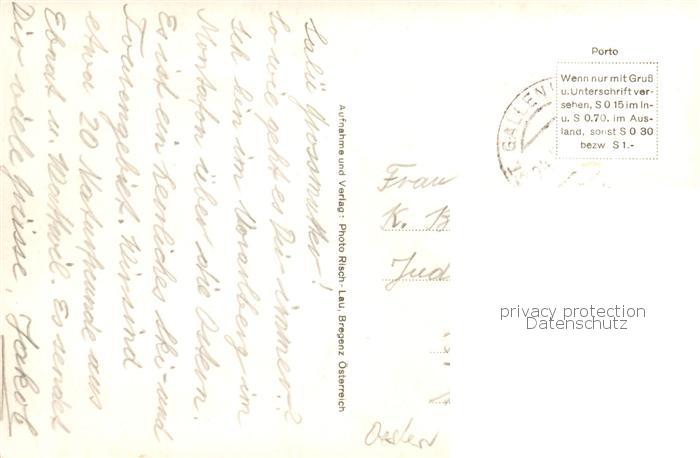 Salü Grossmutter!
So wie geht es Dir immer?
Ich bin im Vorarlberg im
Montafon über die Ostern.
Es ist ein herrliches Ski- und
Tourengebiet. Wir sind
etwa 20 Naturfreunde aus
Ebnat u. Wattwil. Es sendet
Dir viele Grüsse, Jakob
Aufnahme und Verlag: Photo Risch-Lau, Bregenz Österreich
Porto
Wenn nur mit Gruß
u. Unterschrift ver-
sehen, S 0 15 im In-
u. S 0.70. im Aus-
land, sonst S 0 30
bezw S 1.-
GALLEN
Frau
K. B
Jud
Oester
privacy protection
Datenschutz